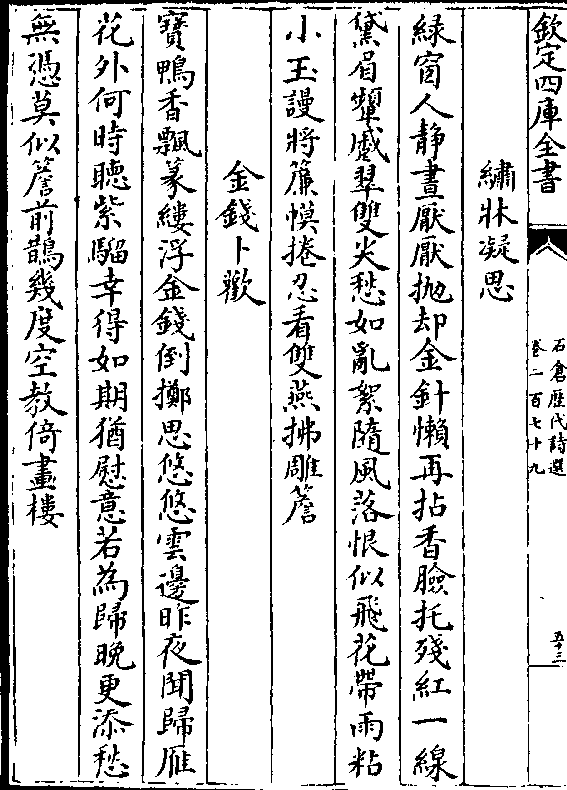 欽定四庫全書
石倉歴代詩選
卷二百七十九
五十三
繡牀凝思
綠窗人靜晝厭厭抛却金針懶再拈香臉托殘紅一線
黛眉顰蹙翠雙尖愁如亂絮隨風落恨似飛花帶雨粘
小玉謾將簾幙捲忍看雙燕拂雕簷
金錢卜歡
寶鴨香飄篆縷浮金錢倒擲思悠悠雲邊昨夜聞歸雁
花外何時聽紫騮幸得如期猶慰意若為歸晚更添愁
無憑莫似簷前鵲幾度空教倚畫樓